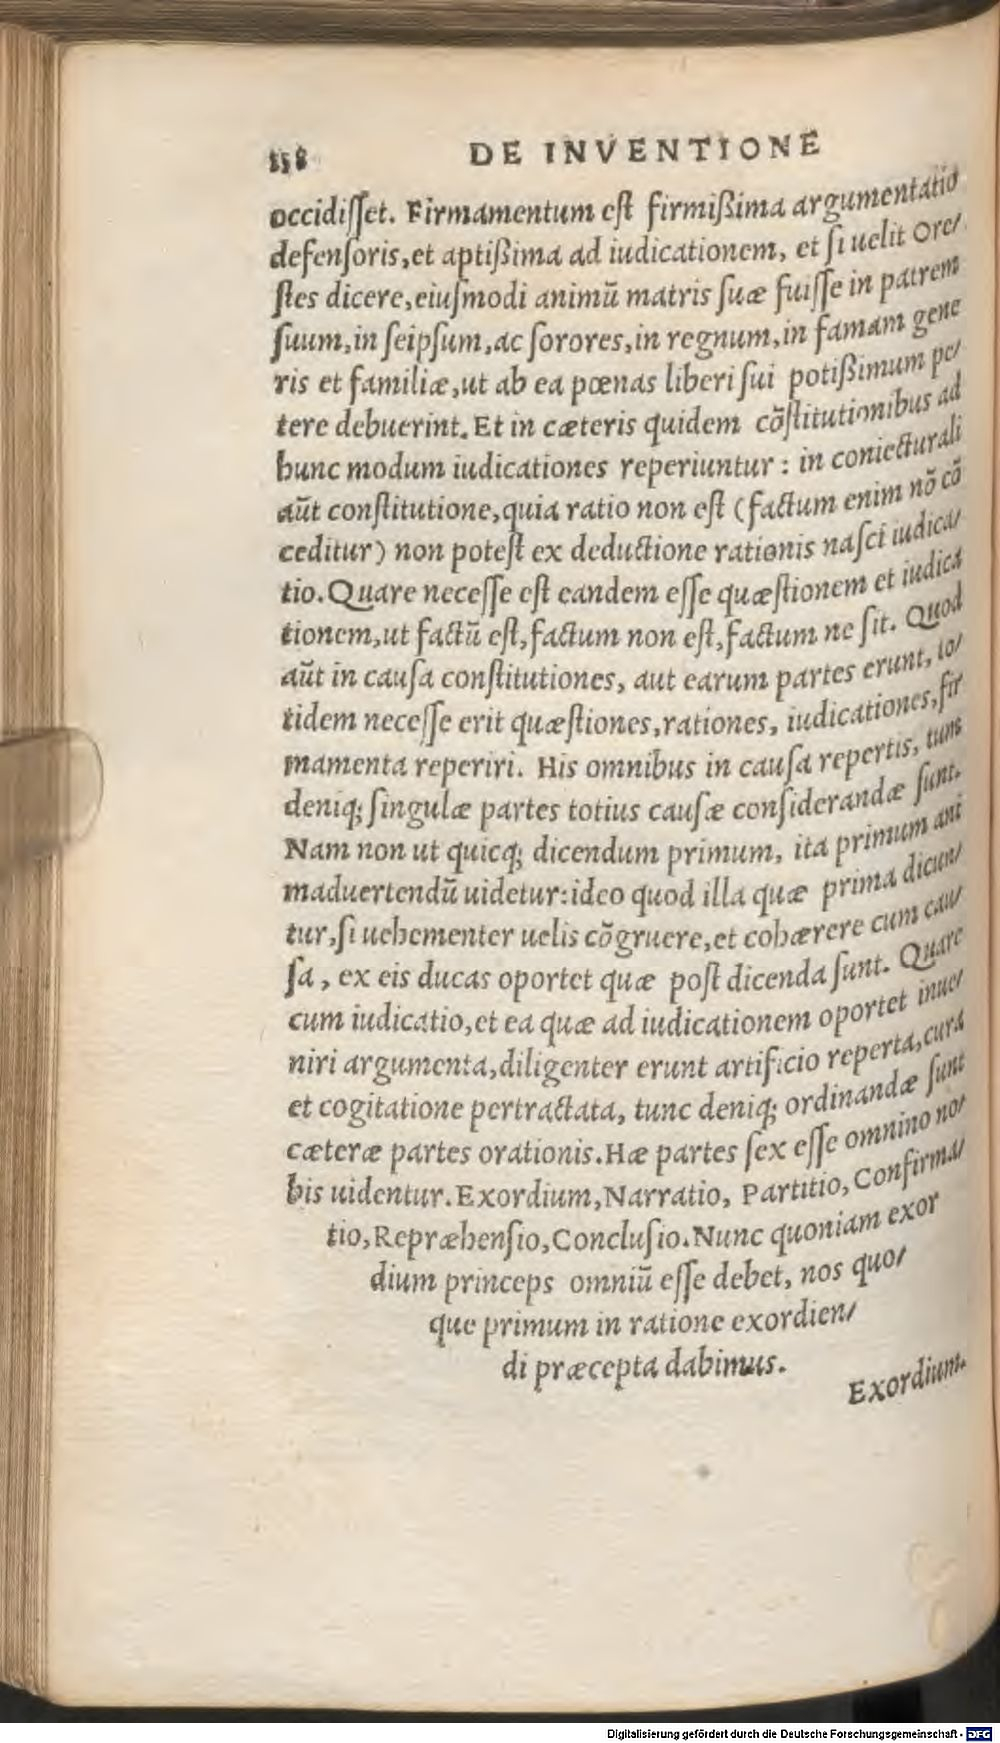 158 DE INVENTIONE
occidiſſet. Firmamentum eſt firmißima argumentatio
defenſoris,et aptißima ad iudicationem, et ſi uelit Ore/
ſtes dicere,eiuſmodi animū matris ſuæ fuiſſe in patrem
ſuum,in ſeipſum,ac ſorores,in regnum,in famam gene
ris et familiæ,ut ab ea pœnas liberi ſui potißimum pe/
tere debuerint. Et in cæteris quidem cōſtitutionibus ad
hunc modum iudicationes reperiuntur : in coniecturali
aūt conſtitutione,quia ratio non eſt (factum enim nō cō
ceditur) non poteſt ex deductione rationis naſci iudica/
tio. Quare neceſſe eſt eandem eſſe quæſtionem et iudica
tionem,ut factū eſt,factum non eſt,factum ne ſit. Quod
aūt in cauſa conſtitutiones, aut earum partes erunt, to/
tidem neceſſe erit quæſtiones,rationes, iudicationes,fir
mamenta reperiri. His omnibus in cauſa repertis, tum
deniq; ſingulæ partes totius cauſæ conſiderandæ ſunt.
Nam non ut quicq; dicendum primum, ita primum ani
maduertendū uidetur:ideo quod illa quæ prima dicun/
tur,ſi uehementer uelis cōgruere,et cohærere cum cau/
ſa , ex eis ducas oportet quæ poſt dicenda ſunt. Quare
cum iudicatio,et ea quæ ad iudicationem oportet inue/
niri argumenta,diligenter erunt artificio reperta,cura
et cogitatione pertractata, tunc deniq; ordinandæ ſunt
cæteræ partes orationis.Hæ partes ſex eſſe omnino no/
bis uidentur. Exordium,Narratio, Partitio, Confirma/
tio,Repræhenſio,Concluſio.Nunc quoniam exor
dium princeps omniū eſſe debet, nos quo/
que primum in ratione exordien/
di præcepta dabimus.
Exordium.
Digitalisierung gefördert durch die Deutsche Forschungsgemeinschaft - DFG